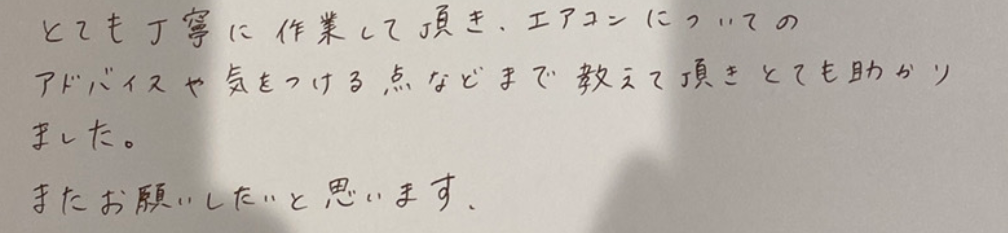 とても丁寧に作業して頂き、エアコンについての
アドバイスや気をつける点などまで教えて頂きとても助かり
ました。
またお願いしたいと思います、